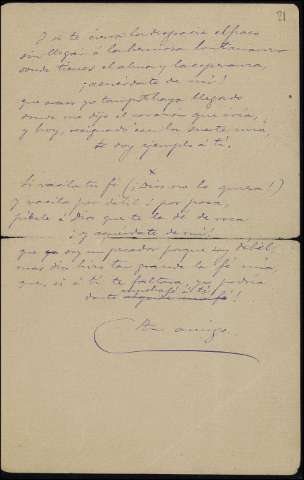 21
Y si te cierra la desgracia el paso
sin llegar á la hermosa lontananza
donde tienes el alma y la esperanza,
¡acuérdate de mí!
que acaso yo tampoco haya llegado
donde me dijo el corazón que iría,
y hoy, resignado con la suerte mía,
te doy ejemplo á tí.
x
Si vacila tu fe (¡Dios no lo quiera!)
y vacila por débil ó por poca,
pídele á Dios que te la dé de roca
¡y acuérdate de mí!
que yo soy un pecador porque soy débil,
mas dió hizo tan grande la fé mía,
que, si á tí te faltara, yo podría
arrojarte á tí
darte algo de mi fé!
Un amigo